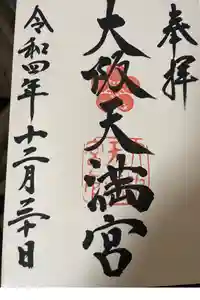 奉拝
大阪天満宮
令和四年十二月二十日